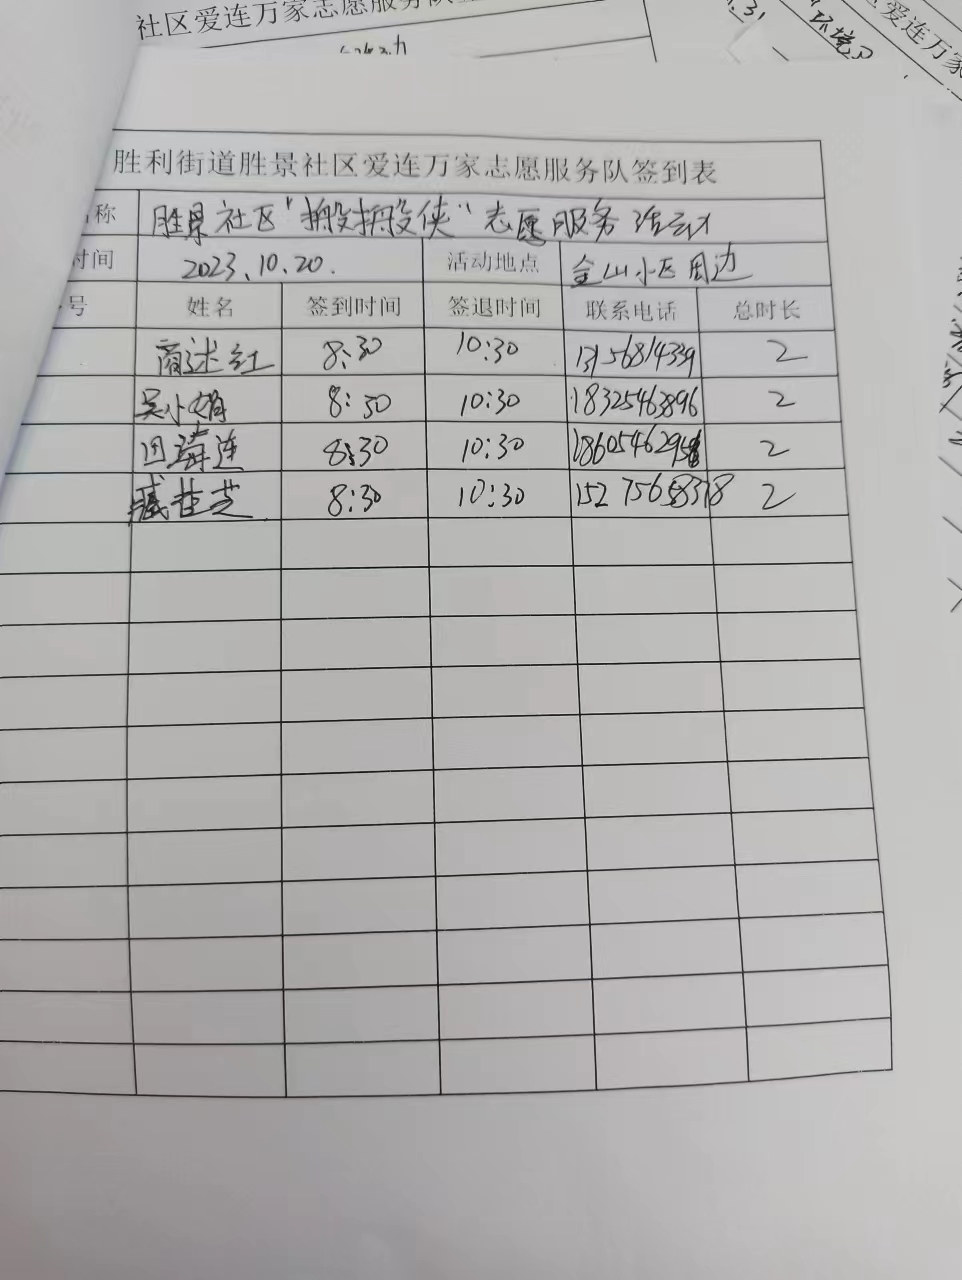 社区爱连万家志愿服务队
环境卫
爱连万家
胜利街道胜景社区爱连万家志愿服务队签到表
称 胜景社区"搬搬侠"志愿服务活动
时间 2023.10.20. 活动地点 金山小区周边
号 姓名 签到时间 签退时间 联系电话 总时长
商述红 8:30 10:30 13156814339 2
吴小娟 8:30 10:30 18325463896 2
田 连 8:30 10:30 2
臧桂芝 8:30 10:30 2